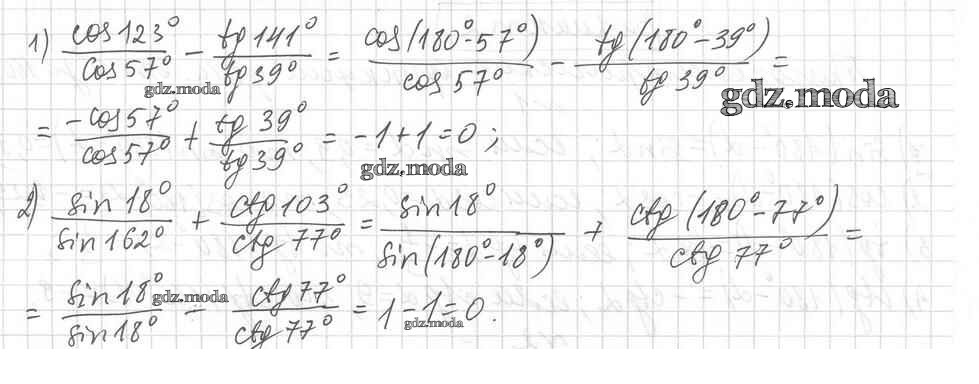 1) cos123°/cos57° - tg141°/tg39° = cos(180°-57°)/cos57° - tg(180°-39°)/tg39° =
gdz.moda
gdz.moda
= -cos57°/cos57° + tg39°/tg39° = -1+1=0;
gdz.moda
2) sin18°/sin162° + ctg103°/ctg77° = sin18°/sin(180°-18°) + ctg(180°-77°)/ctg77° =
= sin18°/sin18° - ctg77°/ctg77° = 1-1=0.
gdz.moda
gdz.moda